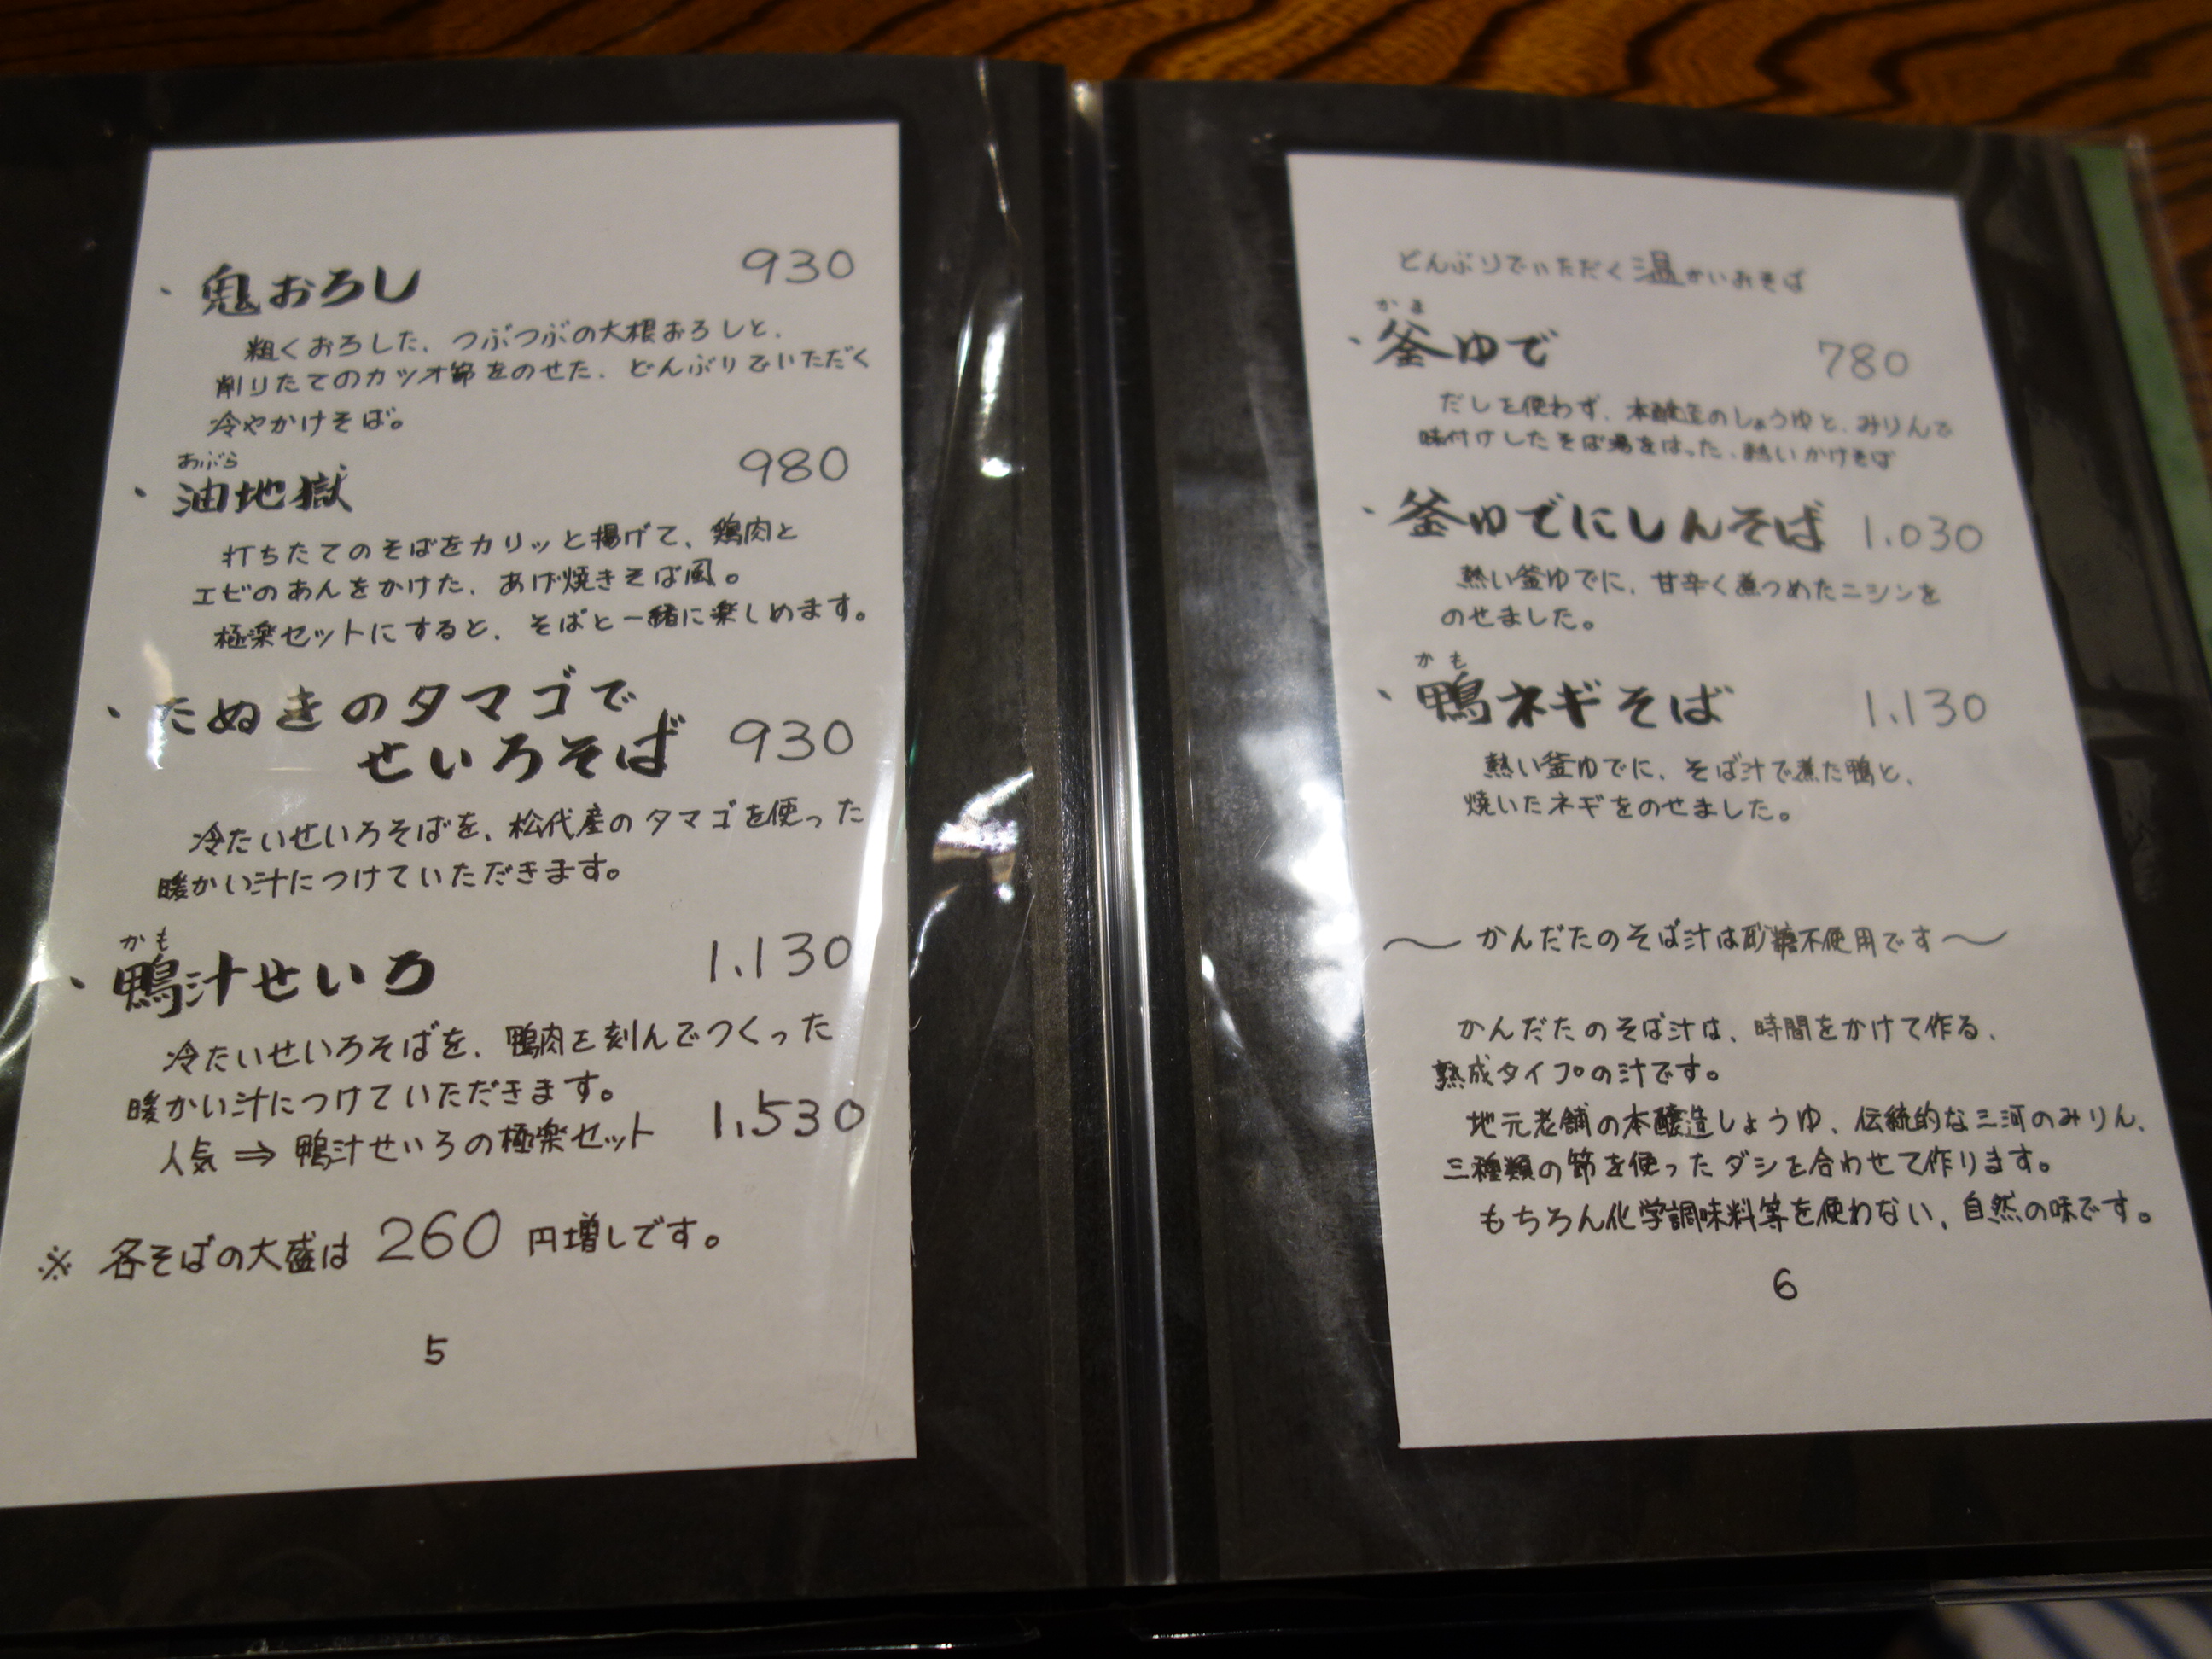 ・鬼おろし 930
粗くおろした、つぶつぶの大根おろしと、
削りたてのカツオ節をのせた、どんぶりでいただく
冷やかけそば。
あぶら
・油地獄 980
打ちたてのそばをカリッと揚げて、鶏肉と
エビのあんをかけた、あげ焼きそば風。
極楽セットにすると、そばと一緒に楽しめます。
・たぬきのタマゴで
せいろそば 930
冷たいせいろそばを、松代産のタマゴを使った
暖かい汁につけていただきます。
かも
・鴨汁せいろ 1,130
冷たいせいろそばを、鴨肉を刻んでつくった
暖かい汁につけていただきます。
人気⇒鴨汁せいろの極楽セット 1,530
※ 各そばの大盛は 260 円増しです。
5
どんぶりでいただく温かいおそば
かま
・釜ゆで 780
だしを使わず、本醸造のしょうゆと、みりんで
味付けしたそば湯をはった、熱いかけそば
・釜ゆでにしんそば 1,030
熱い釜ゆでに、甘辛く煮つめたニシンを
のせました。
かも
・鴨ネギそば 1,130
熱い釜ゆでに、そば汁で煮た鴨と、
焼いたネギをのせました。
〜かんだたのそば汁は砂糖不使用です〜
かんだたのそば汁は、時間をかけて作る、
熟成タイプの汁です。
地元老舗の本醸造しょうゆ、伝統的な三河のみりん、
三種類の節を使ったダシを合わせて作ります。
もちろん化学調味料等を使わない、自然の味です。
6